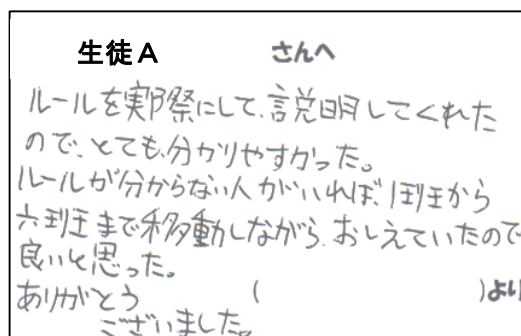 生徒A さんへ
ルールを実際にして、説明してくれた
ので、とても、分かりやすかった。
ルールが分からない人がいれば、1班から
六班まで移動しながら、おしえていたので
良いと思った。
ありがとう ( )より
ございました。